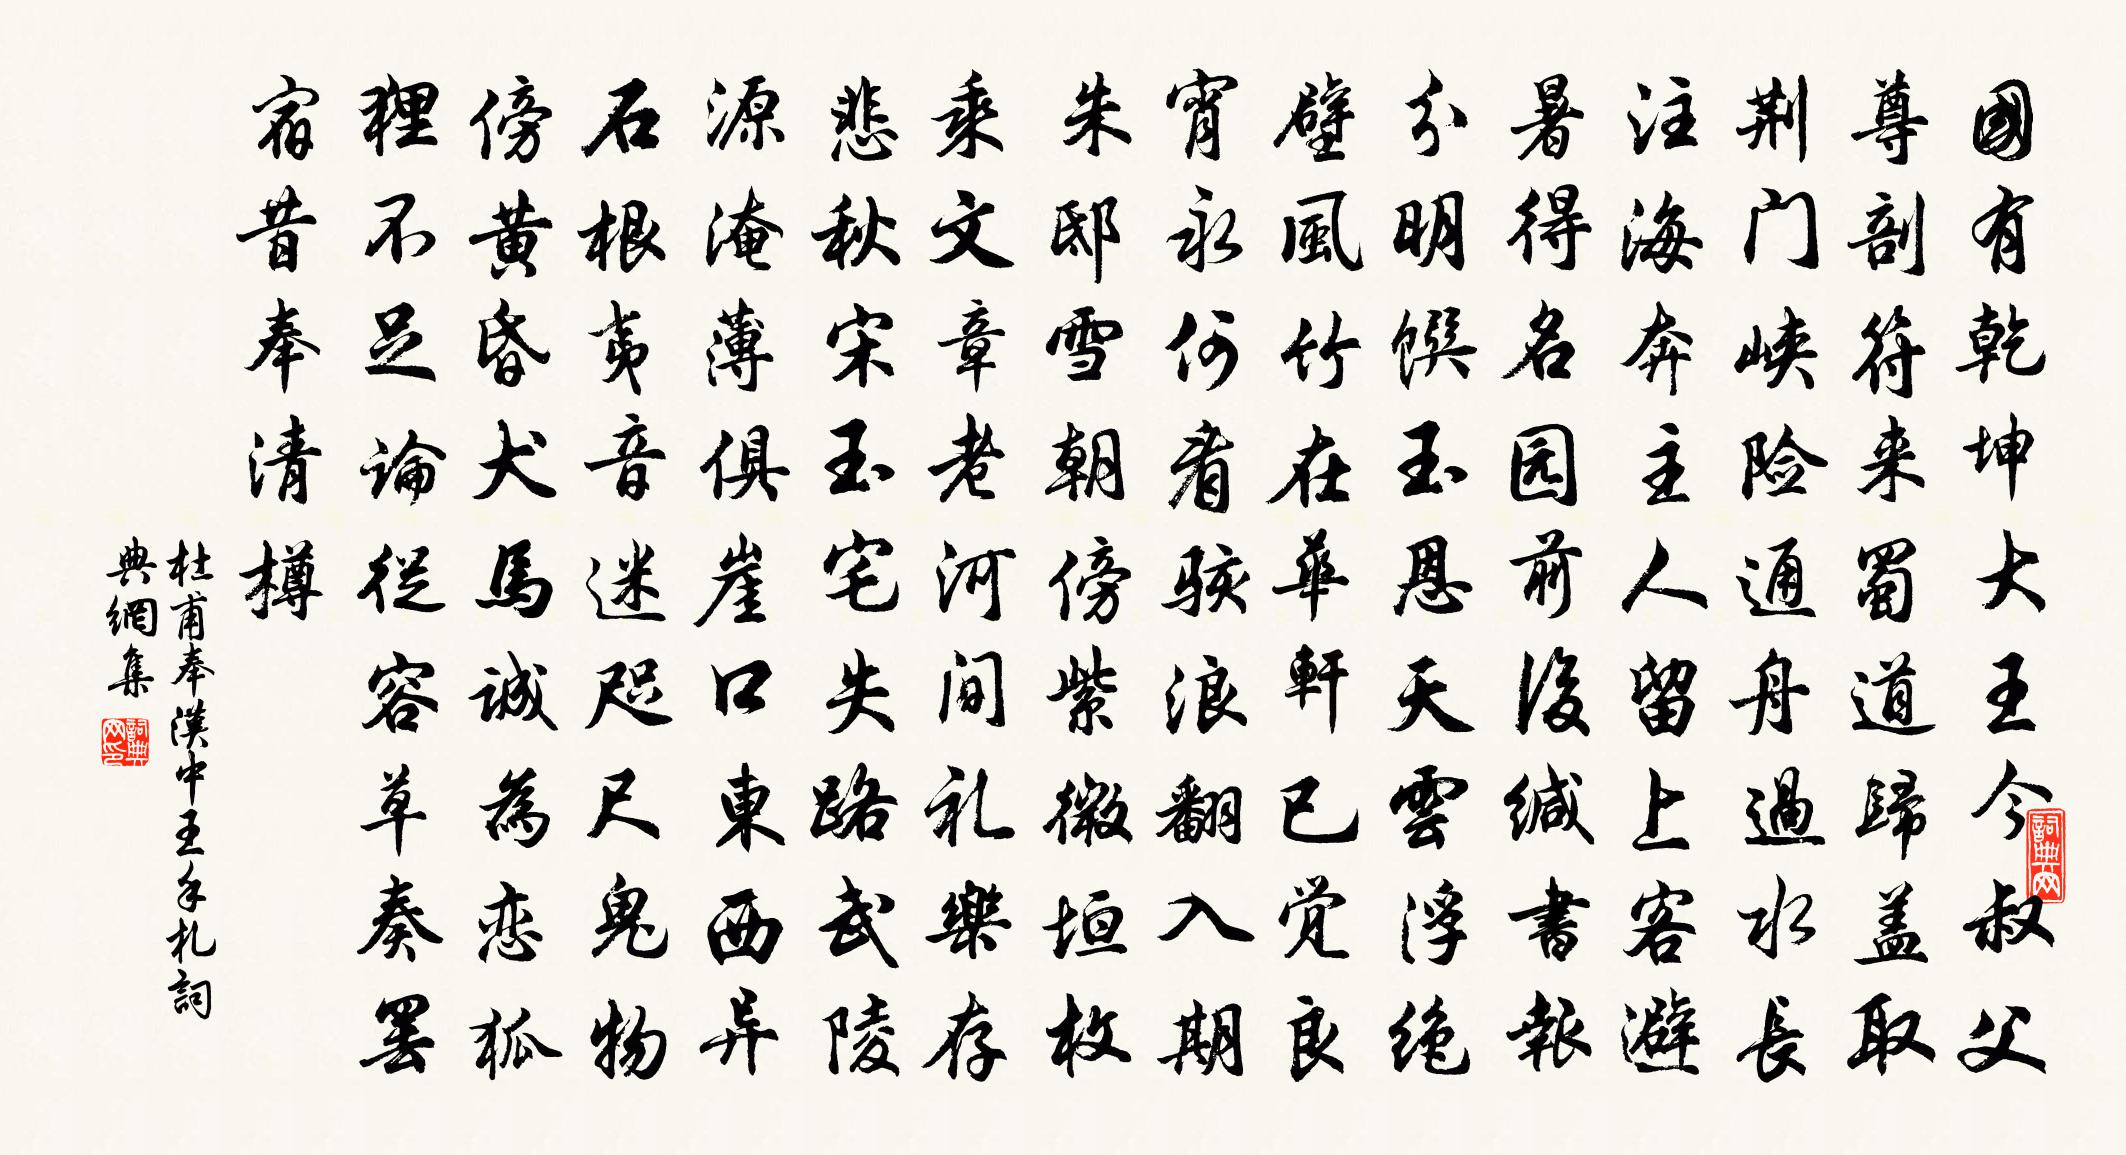 國有乾坤大王今叔父
尊剖符来蜀道歸盖取
荆门峡险通舟過水長
注海奔主人留上客避
暑得名园前後缄書報
分明馔玉恩天雲浮绝
壁風竹在華軒已觉良
宵永何看骇浪翻入期
朱邸雪朝傍紫微垣枚
乘文章老河间礼樂存
悲秋宋玉宅失路武陵
源淹薄俱崖口東西异
石根夷音迷咫尺鬼物
傍黄昏犬馬诚為恋狐
狸不足論從容草奏罢
宿昔奉清樽
杜甫奉漢中王手札詞
典網集
詞典网
詞典网印